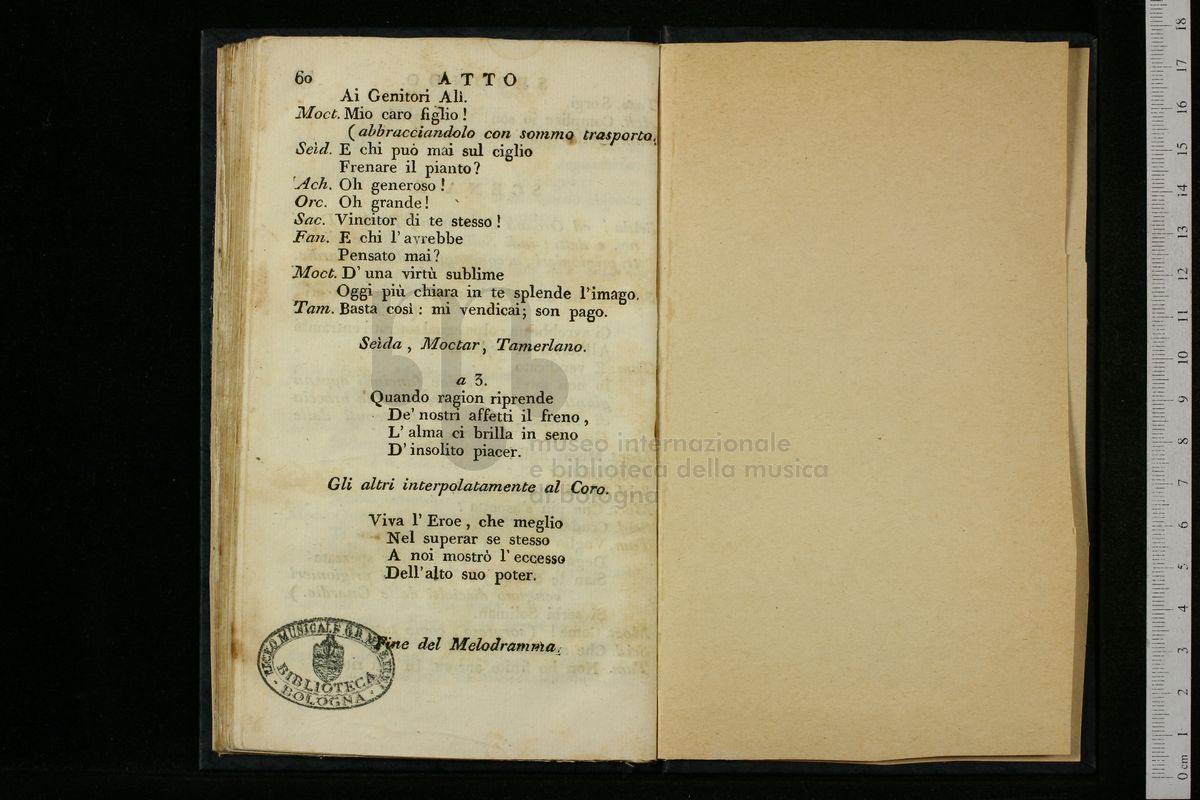 60 ATTO
Ai Genitori Alì.
Moct. Mio caro figlio !
( abbracciandolo con sommo trasporto.
Seìd. E chi può mai sul ciglio
Frenare il pianto ?
Ach. Oh generoso !
Orc. Oh grande !
Sac. Vincitor di te stesso !
Fan. E chi l' avrebbe
Pensato mai ?
Moct. D' una virtù sublime
Oggi più chiara in te splende l'imago.
Tam. Basta così : mi vendicai; son pago.
Seìda , Moctar, Tamerlano.
a 3.
Quando ragion riprende
De' nostri affetti il freno ,
L' alma ci brilla in seno
D' insolito piacer.
Gli altri interpolatamente al Coro.
Viva l' Eroe , che meglio
Nel superar se stesso
A noi mostrò l' eccesso
Dell'alto suo poter.
Fine del Melodramma.
LICEO MUSICALE
BIBLIOTECA
BOLOGNA
museo internazionale
e biblioteca della musica
di bologna
18
17
16
15
14
13
12
11
10
9
8
7
6
5
4
3
2
1
0 cm